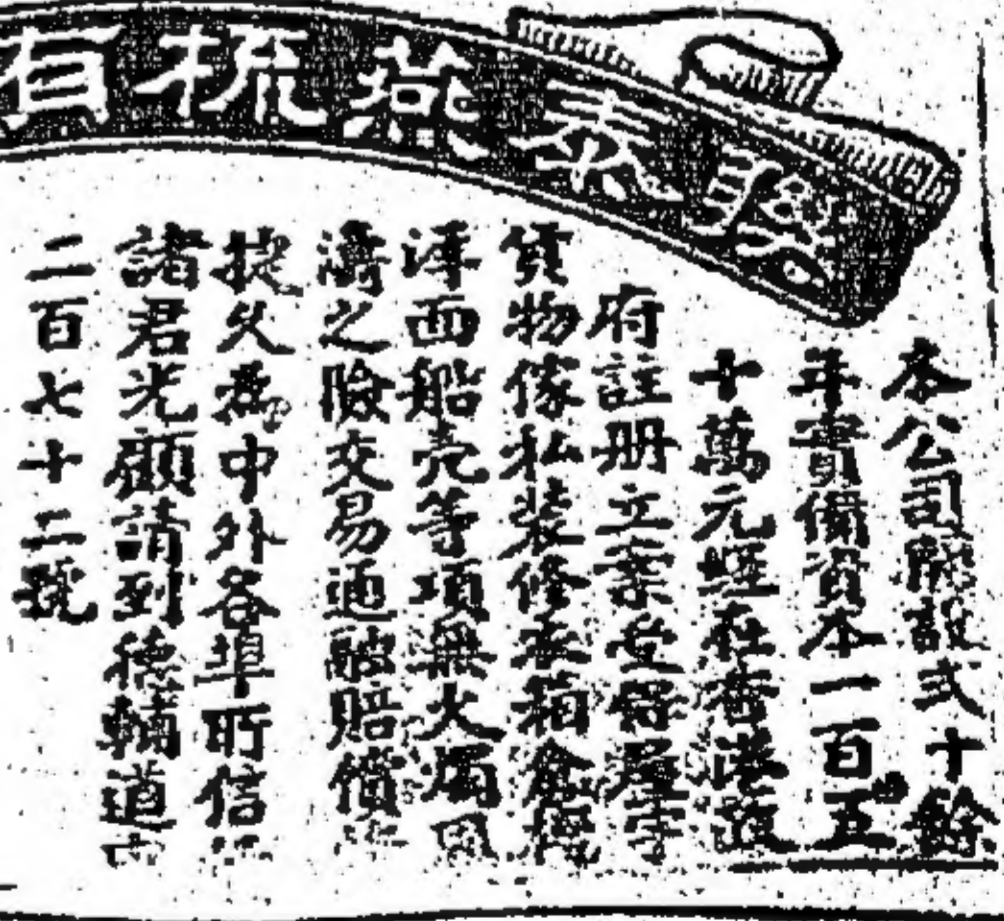 聚泰燕梳有
本公司開設弍十餘
年實備資本一百五
十萬元經在香港
府註册立案妥保屋宇
貨物傢私裝修衣箱
洋面船壳等項無火燭風
濤之險交易通融賠償
捷久為中外各埠所信
諸君光顧請到德輔道
二百七十二號